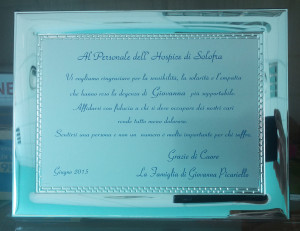 Al Personale dell' Hospice di Solofra
Vi vogliamo ringraziare per la sensibilità, la solarità e l'empatia
che hanno reso la degenza di Giovanna più sopportabile.
Affidarsi con fiducia a chi si deve occupare dei nostri cari
rende tutto meno doloroso.
Sentirsi una persona e non un numero è molto importante per chi soffre.
Grazie di Cuore
Giugno 2013 La Famiglia di Giovanna Picariello